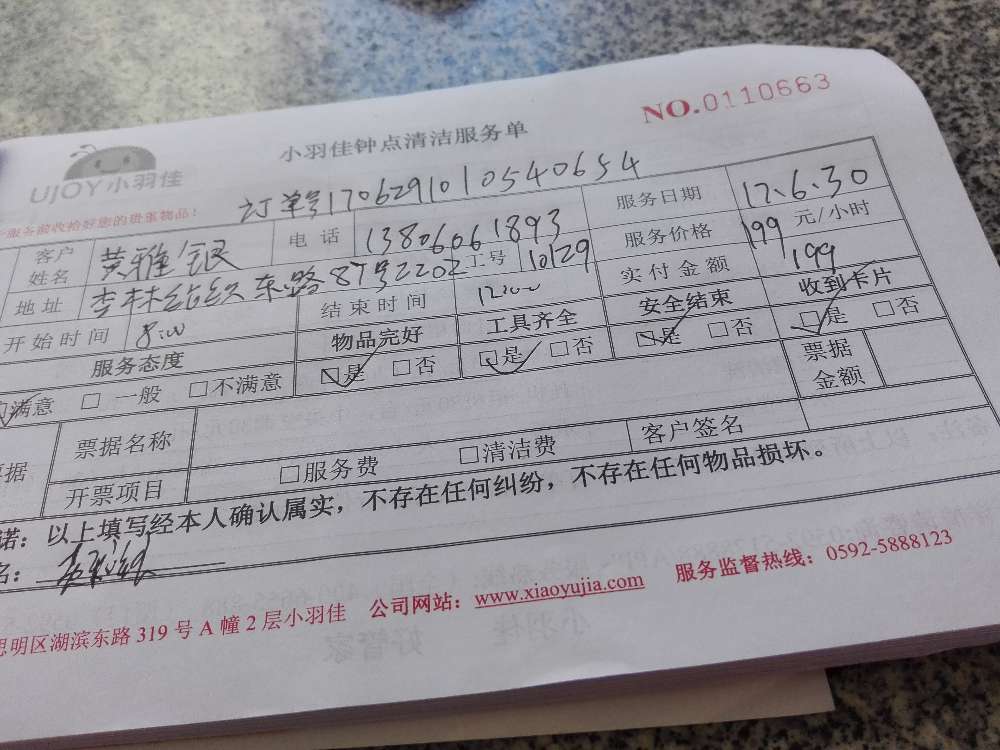 NO.0110663
UJOY小羽佳
小羽佳钟点清洁服务单
服务前收拾好您的贵重物品！
订单号17062910105406S4
客户姓名 黄雅银 电话 13806061893 服务日期 17.6.30
地址 87号2202 工号 10129 服务价格 199 元/小时
开始时间 8:00 结束时间 12:00 实付金额 199
服务态度 物品完好 工具齐全 安全结束 收到卡片
□满意 □一般 □不满意 □是 □否 □是 □否 □是 □否 □是 □否
票据名称 票据金额
开票项目 □服务费 □清洁费 客户签名
诺：以上填写经本人确认属实，不存在任何纠纷，不存在任何物品损坏。
名：
思明区湖滨东路 319 号 A 幢 2 层小羽佳 公司网站：www.xiaoyujia.com 服务监督热线：0592-5888123